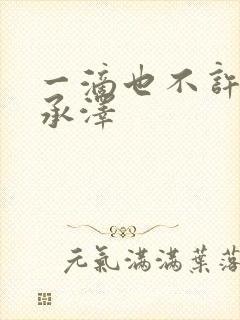 一滴也不許
承澤
元氣滿滿葉落